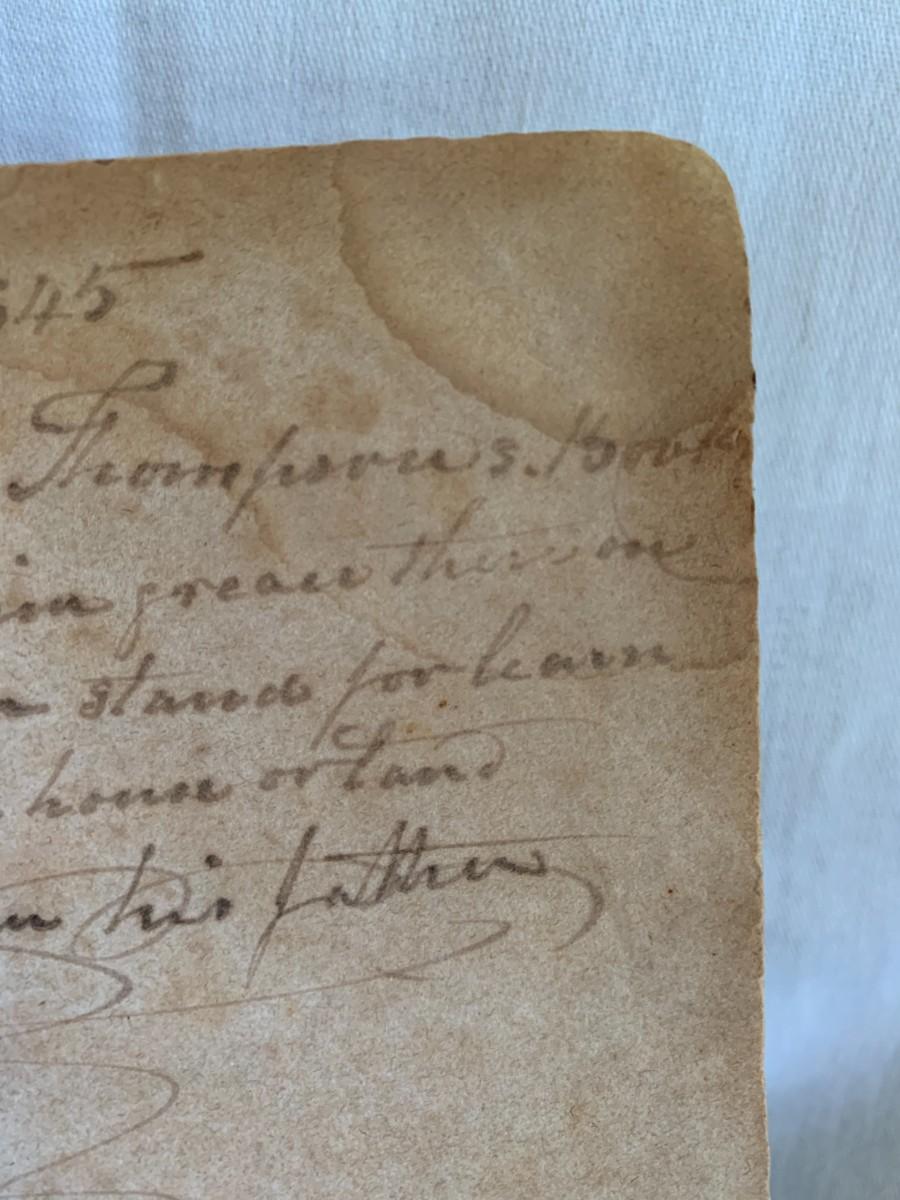 545
Thompson s. Book
in greace there on
stand for learn
house or land
his father